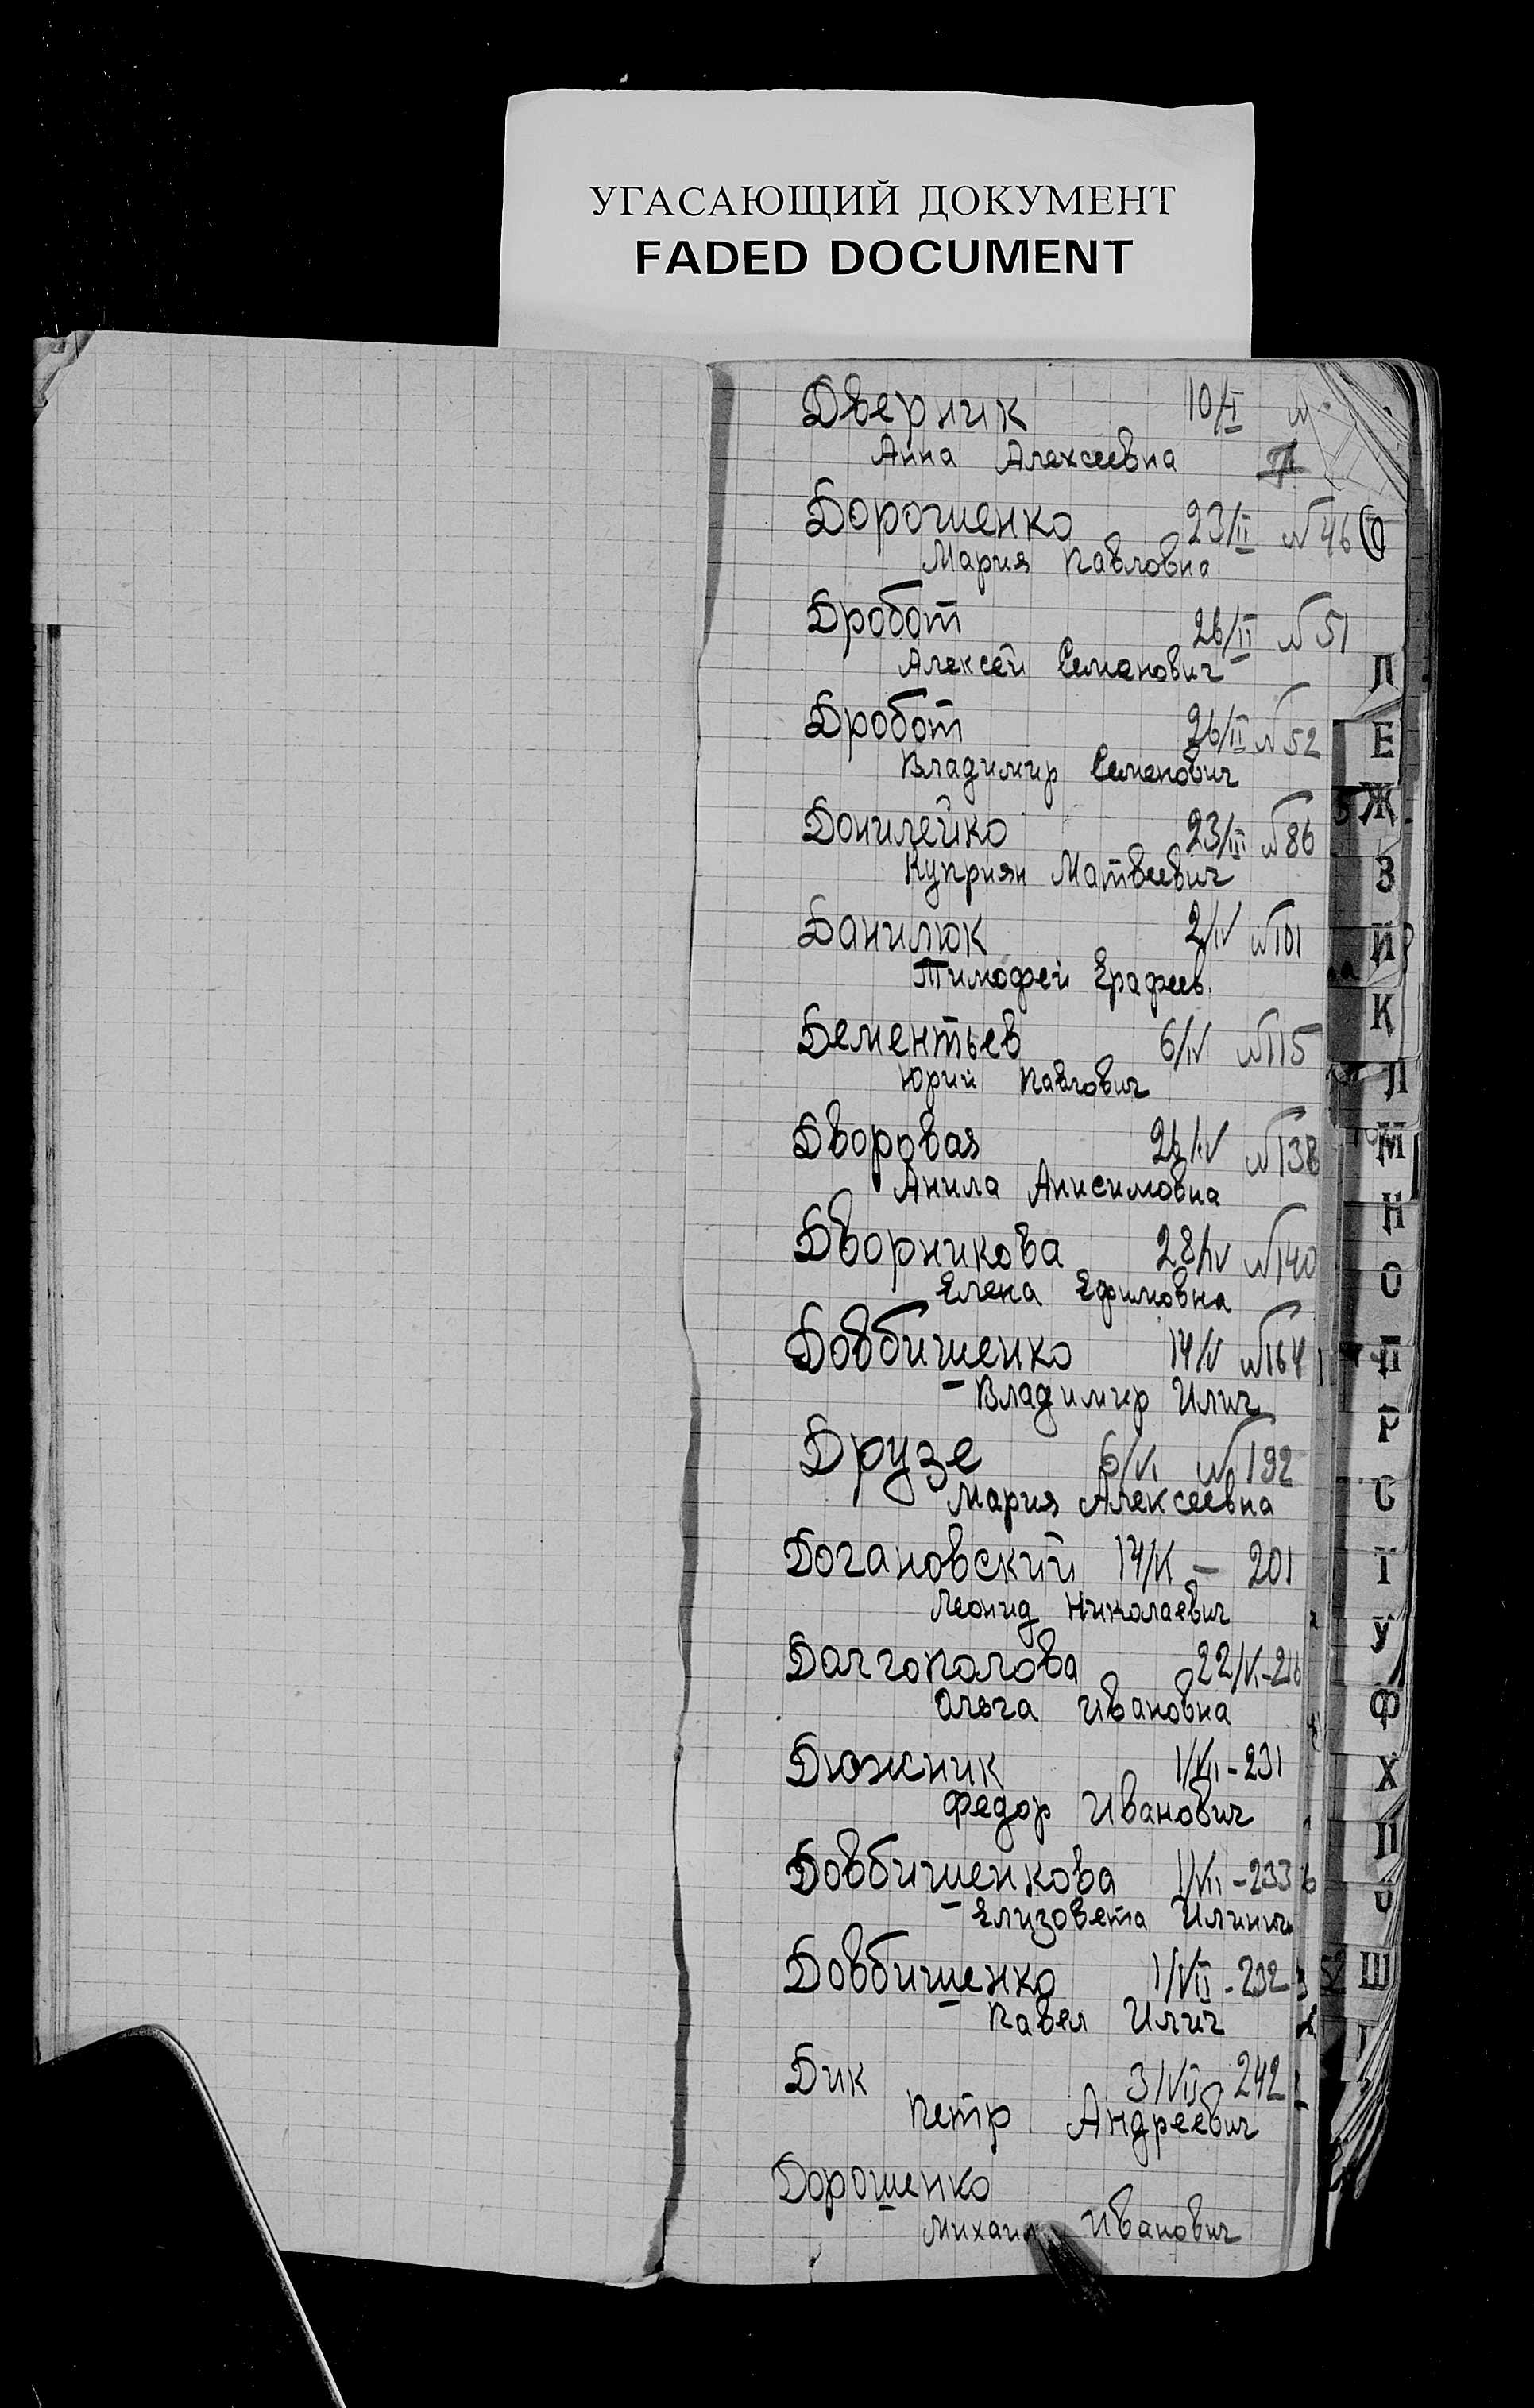 УГАСАЮЩИЙ ДОКУМЕНТ
FADED DOCUMENT
Дверник 10/I
Анна Алексеевна
Дорошенко 23/II №46
Мария Павловна
Дробот 26/II №51
Алексей Семанович
Дробот 26/II №52
Владимир Семенович
Донилейко 23/III №86
Куприян Матвеевич
Данилюк 2/IV №101
Тимофей Ерафеев.
Дементьев 6/IV №115
Юрий Павлович
Дворовая 26/IV №138
Анила Анисимовна
Дворникова 28/IV №140
Елена Ефимовна
Довбишенко 14/V №164
Владимир Илич
Друзе 6/VI №192
Мария Алексеевна
Догановский 14/VI – 201
Леонид Николаевич
Далгополова 22/VI-216
Ольга Ивановна
Дюжник 1/VII-231
Федор Иванович
Довбишенкова 1/VII-233
Елизовета
Довбишенко 1/VII-232
Павел Илич
Дик 3/VII-242
Петр Андреевич
Дорошенко
Михаил Иванович
Д
Е
Ж
З
И
К
Л
М
Н
О
П
Р
С
Т
У
Ф
Х
Ц
Ш